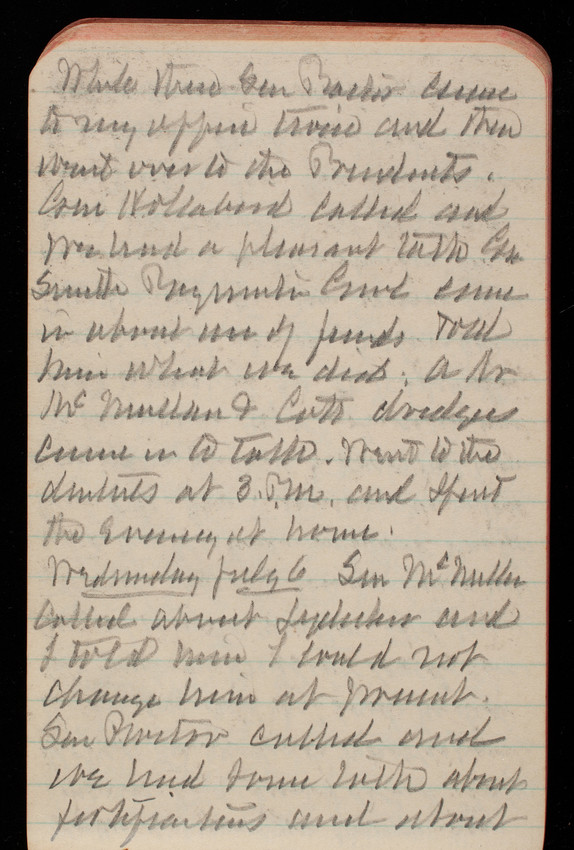 While there Sen Proctor came
to my office twice and then
went over to the Presidents.
Gen Holabird called and
we had a pleasant talk Gen
Smith Paymaster Genl came
in about use of funds. Told
him what we did. A Mr
McMullan & Cott dredges
came in to talk. Went to the
dentists at 3. P.M. and spent
the evening at home.
Wednesday July 6 Sen McMillan
called about and
I told him I could not
change him at present.
Sen Proctor called and
we had some talk about
fortifications and about